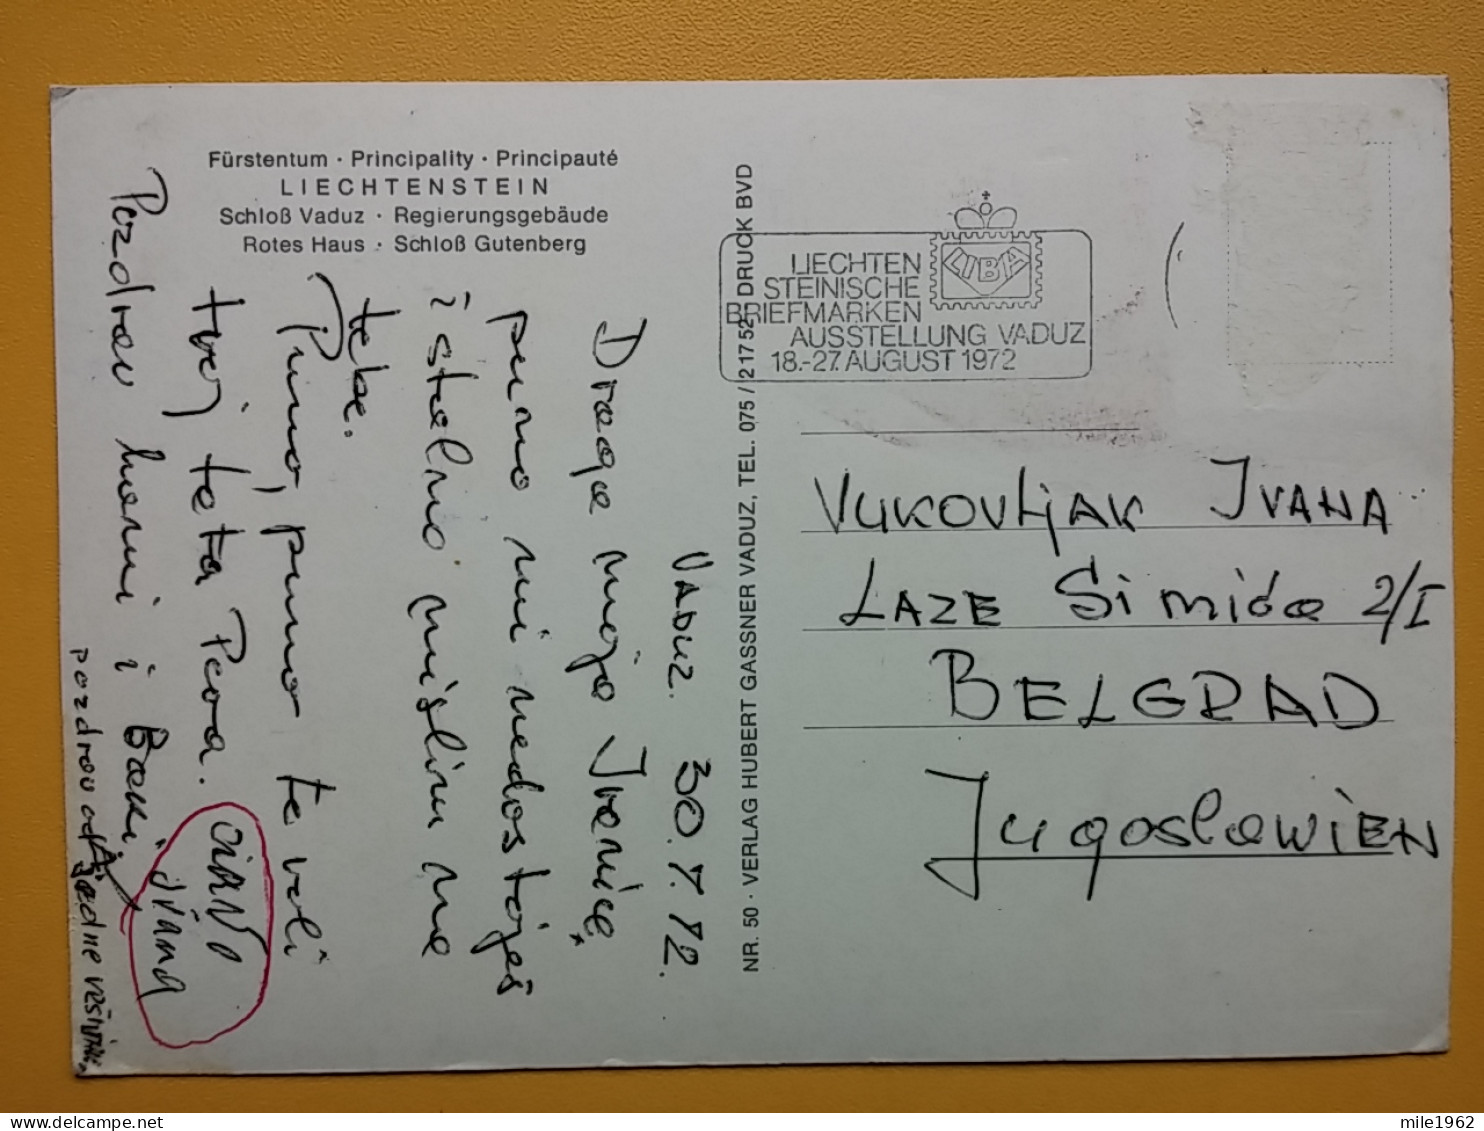 Fürstentum · Principality · Principauté
LIECHTENSTEIN
Schloß Vaduz · Regierungsgebäude
Rotes Haus · Schloß Gutenberg
NR. 50 · VERLAG HUBERT GASSNER VADUZ, TEL. 075 / 2 17 52 DRUCK BVD
LIECHTEN
STEINISCHE
BRIEFMARKEN
AUSSTELLUNG VADUZ
18.-27. AUGUST 1972
LIBA
VADUZ. 30.7.72.
Draga moja Ivanice
puno mi nedostoješ
i stalno mislim na
tebe.
Puno, puno te voli
tvoj teta
Pozdrav mami i
pozdrav od
CIAO
IVANA
VUKOVLJAK IVANA
LAZE Simića 2/I
BELGRAD
Jugoslawien
mile1962